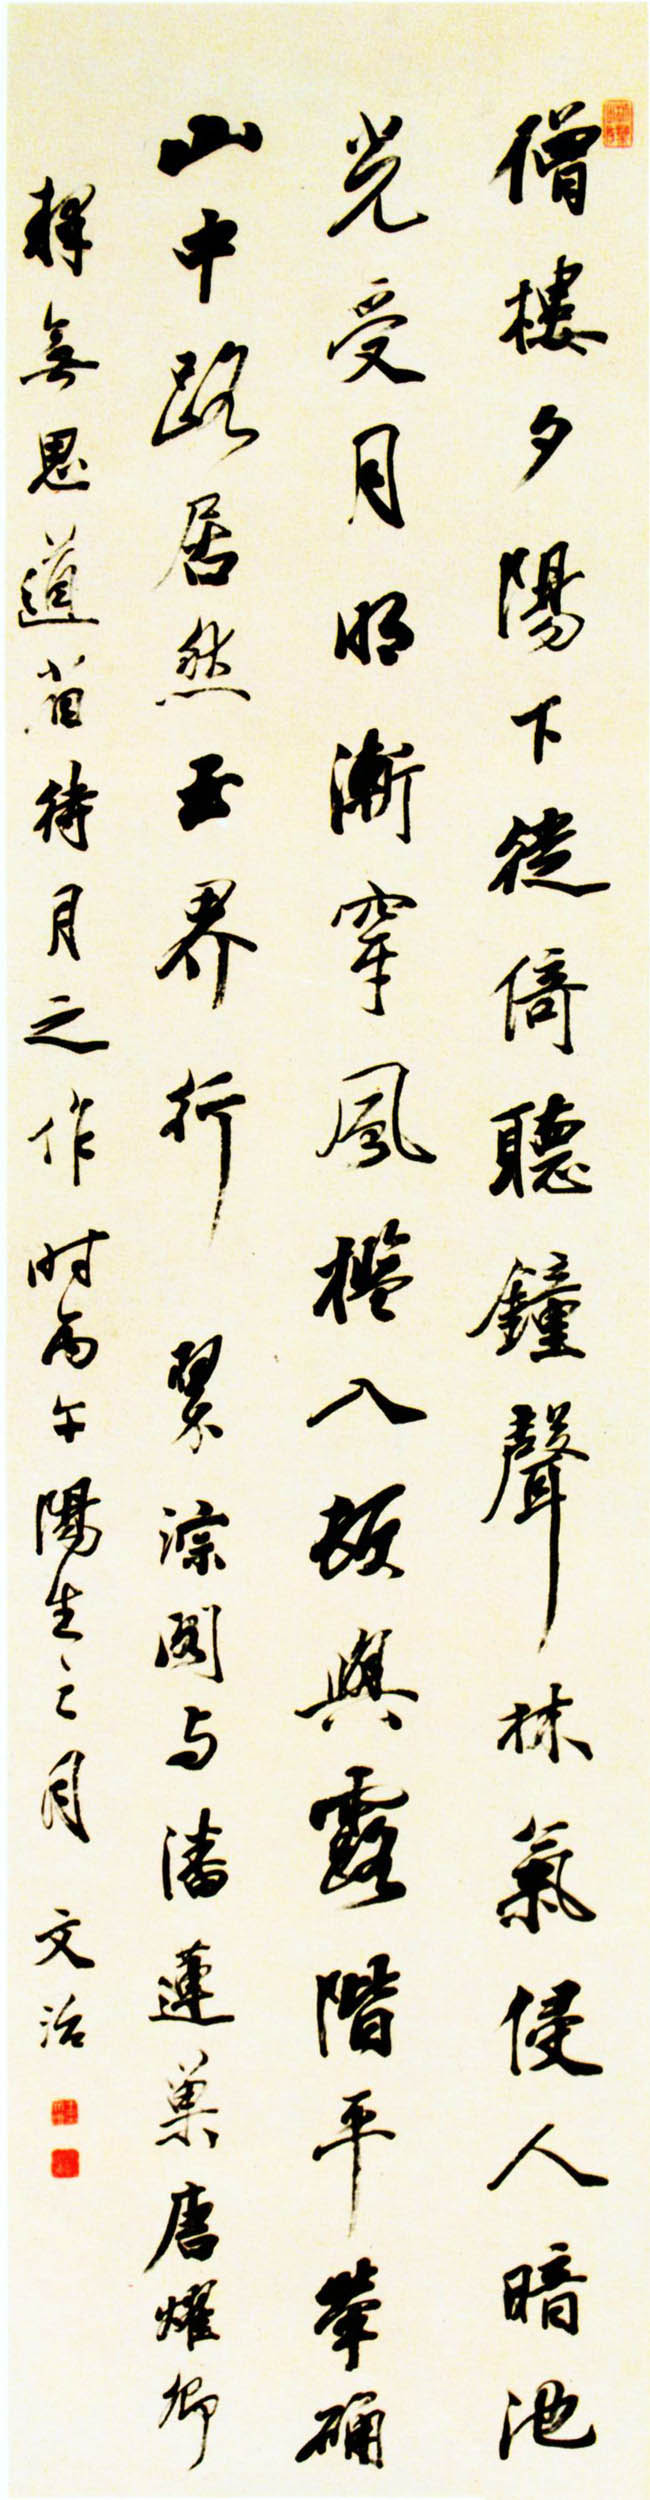 僧樓夕陽下徙倚聽鐘聲林氣侵人暗池
光受月明漸穿風檻入故與露階平犖确
山中路居然玉界行 淙閣与潘蓮巢唐耀卿
釋無思道省待月之作时丙午陽生之月 文治